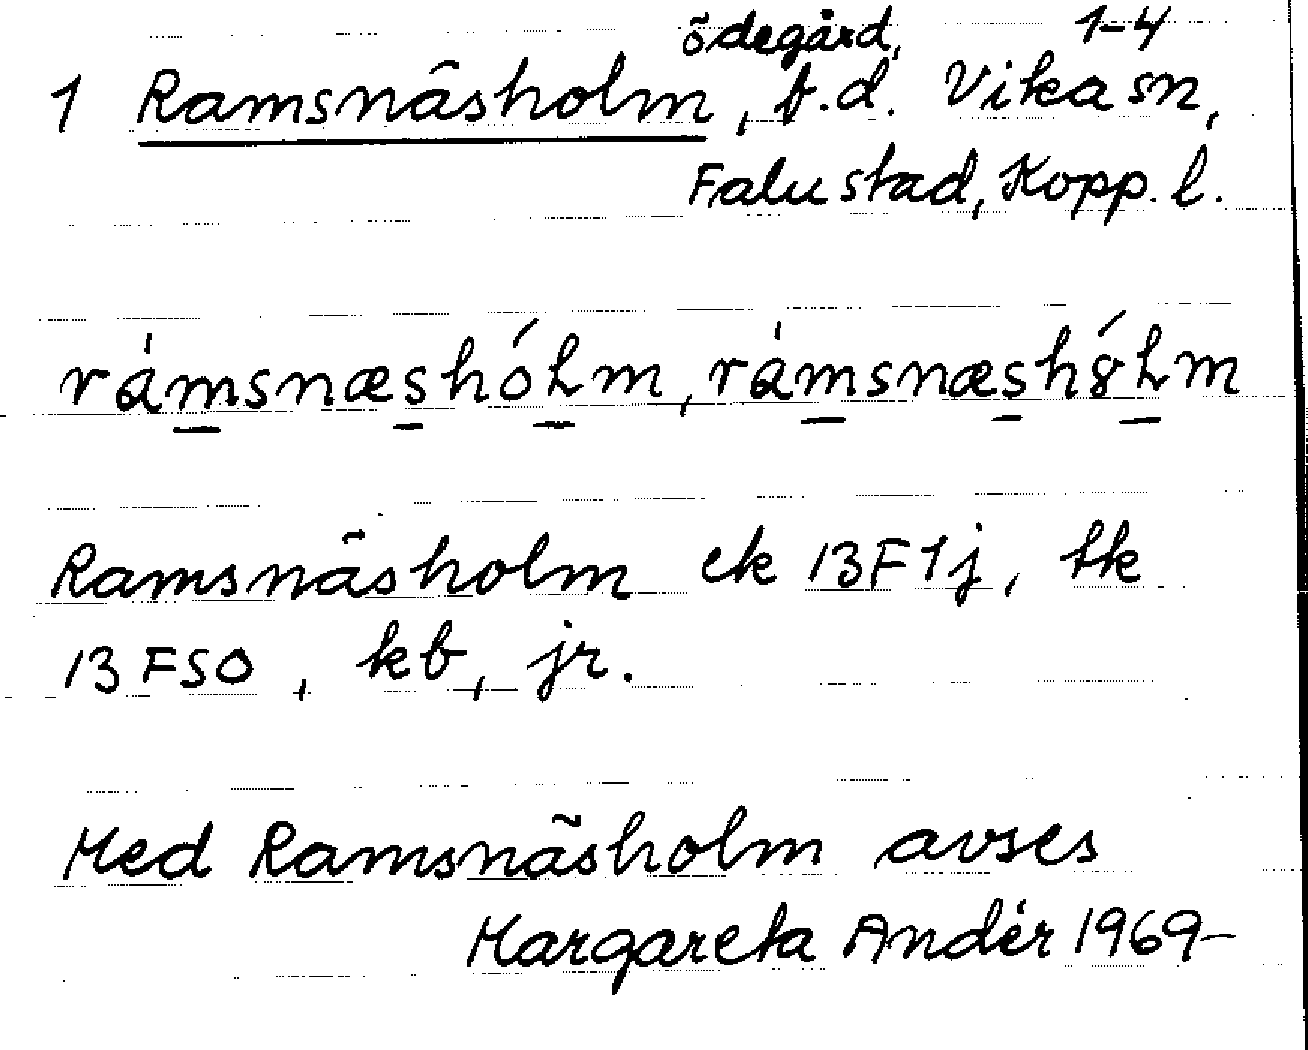 ödegård, 1-4
1 Ramsnäsholm, f.d. Vika sn,
Falu stad, Kopp. l.
rámsnæshólm, rámsnæshȣ́lm
Ramsnäsholm ek 13F1j, tk
13FSO, kb, jr.
Med Ramsnäsholm avses
Margareta Andér 1969–